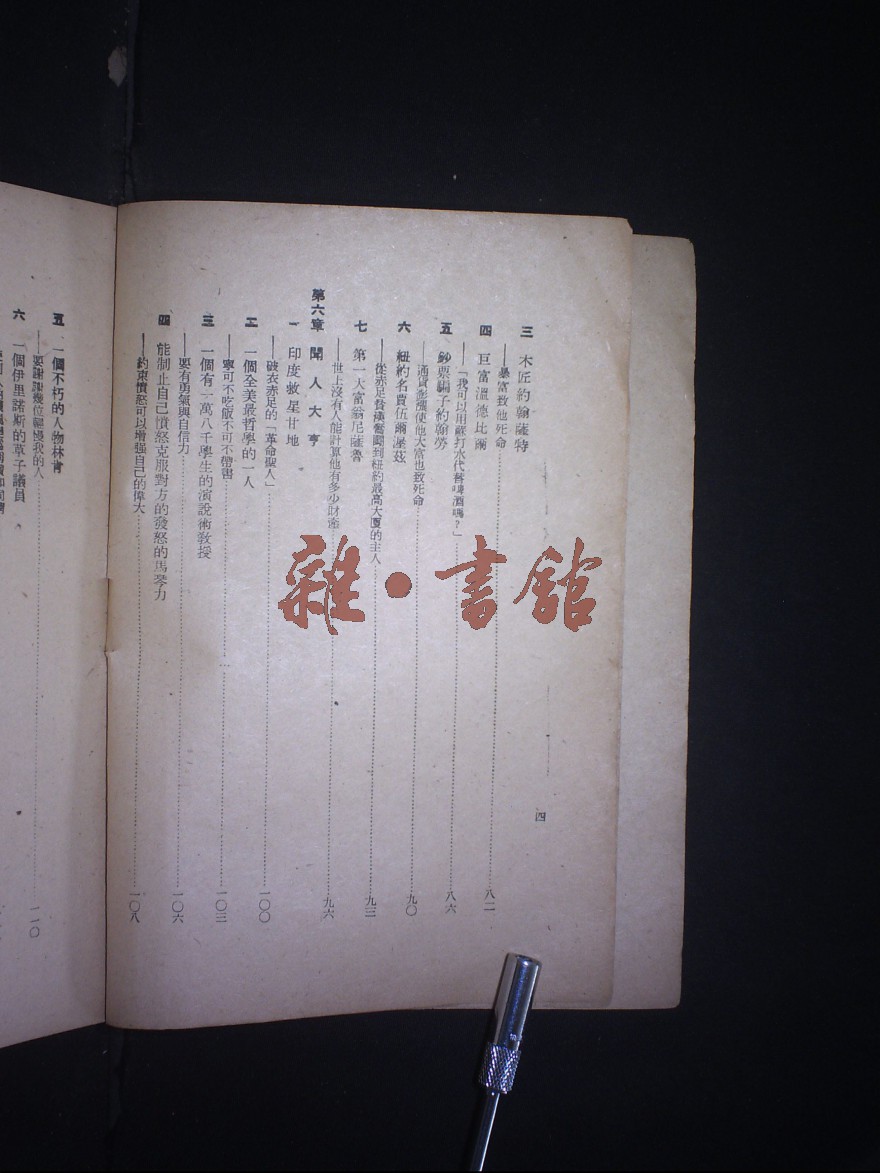 三 木匠約翰薩特
——暴富致他死命……八二
四 巨富溫德比爾
——「我可以用蘇打水代替啤酒嗎？」……八六
五 鈔票騙子約翰勞
——通貨膨漲使他大富也致死命……九〇
六 紐約名費伍爾滋
——從赤足貧漢奮鬭到紐約最高大廈的主人……九三
七 第一大富翁尼薩魯
——世上沒有人能計算他有多少財產……九六
第六章 聞人大亨
一 印度救星甘地
——破衣赤足的「革命聖人」……一〇〇
二 一個全美最哲學的一人
——寧可不吃飯不可不帶書……一〇三
三 一個有一萬八千學生的演說術教授
——要有勇氣與自信力……一〇六
四 能制止自己憤怒克服對方的發怒的馬琴力
——約束憤怒可以增强自己的偉大……一〇八
四
五 一個不朽的人物林肯
——要謝謝幾位輕慢我的人……一一〇
六 一個伊里諾斯的草子議員
雜•書館